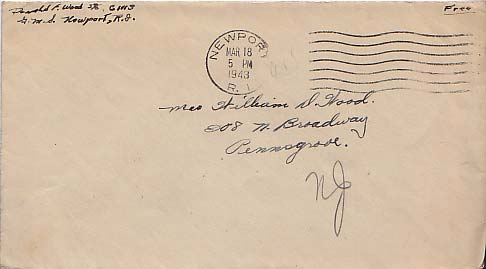 Donald P. Wood
Newport, R.I.
Free
NEWPORT
MAR 18
5 PM
1943
R.I.
Mrs William D. Wood.
208 N. Broadway
Pennsgrove.
NJ